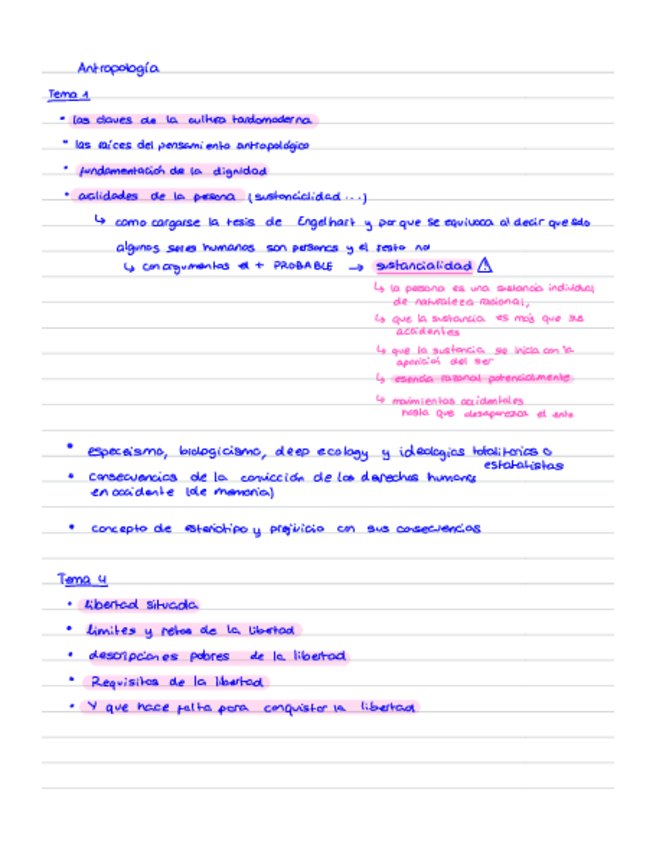 Antropología
Tema 1
• las claves de la cultura tardomoderna
• las raíces del pensamiento antropológico
• fundamentación de la dignidad
• cualidades de la persona (sustancialidad...)
↳ como cargarse la tesis de Engelhart y por que se equivoca al decir que solo
algunos seres humanos son personas y el resto no
↳ con argumentos el + PROBABLE → sustancialidad ⚠
↳ la persona es una sustancia individual
de naturaleza racional,
↳ que la sustancia es más que sus
accidentes
↳ que la sustancia se inicia con la
aparición del ser
↳ esencia razonal potencialmente
↳ movimientos accidentales
hasta que desaparezca el ente
• especeismo, biologicismo, deep ecology y ideologías totalitarias o
estatalistas
• consecuencias de la convicción de los derechos humanos
en occidente (de memoria)
• concepto de esteriotipo y prejuicio con sus consecuencias
Tema 4
• libertad situada
• limites y retos de la libertad
• descripciones pobres de la libertad
• Requisitos de la libertad
• Y que hace falta para conquistar la libertad